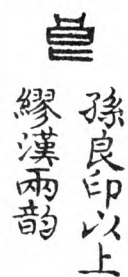 孫良印以上
繆漢兩韵